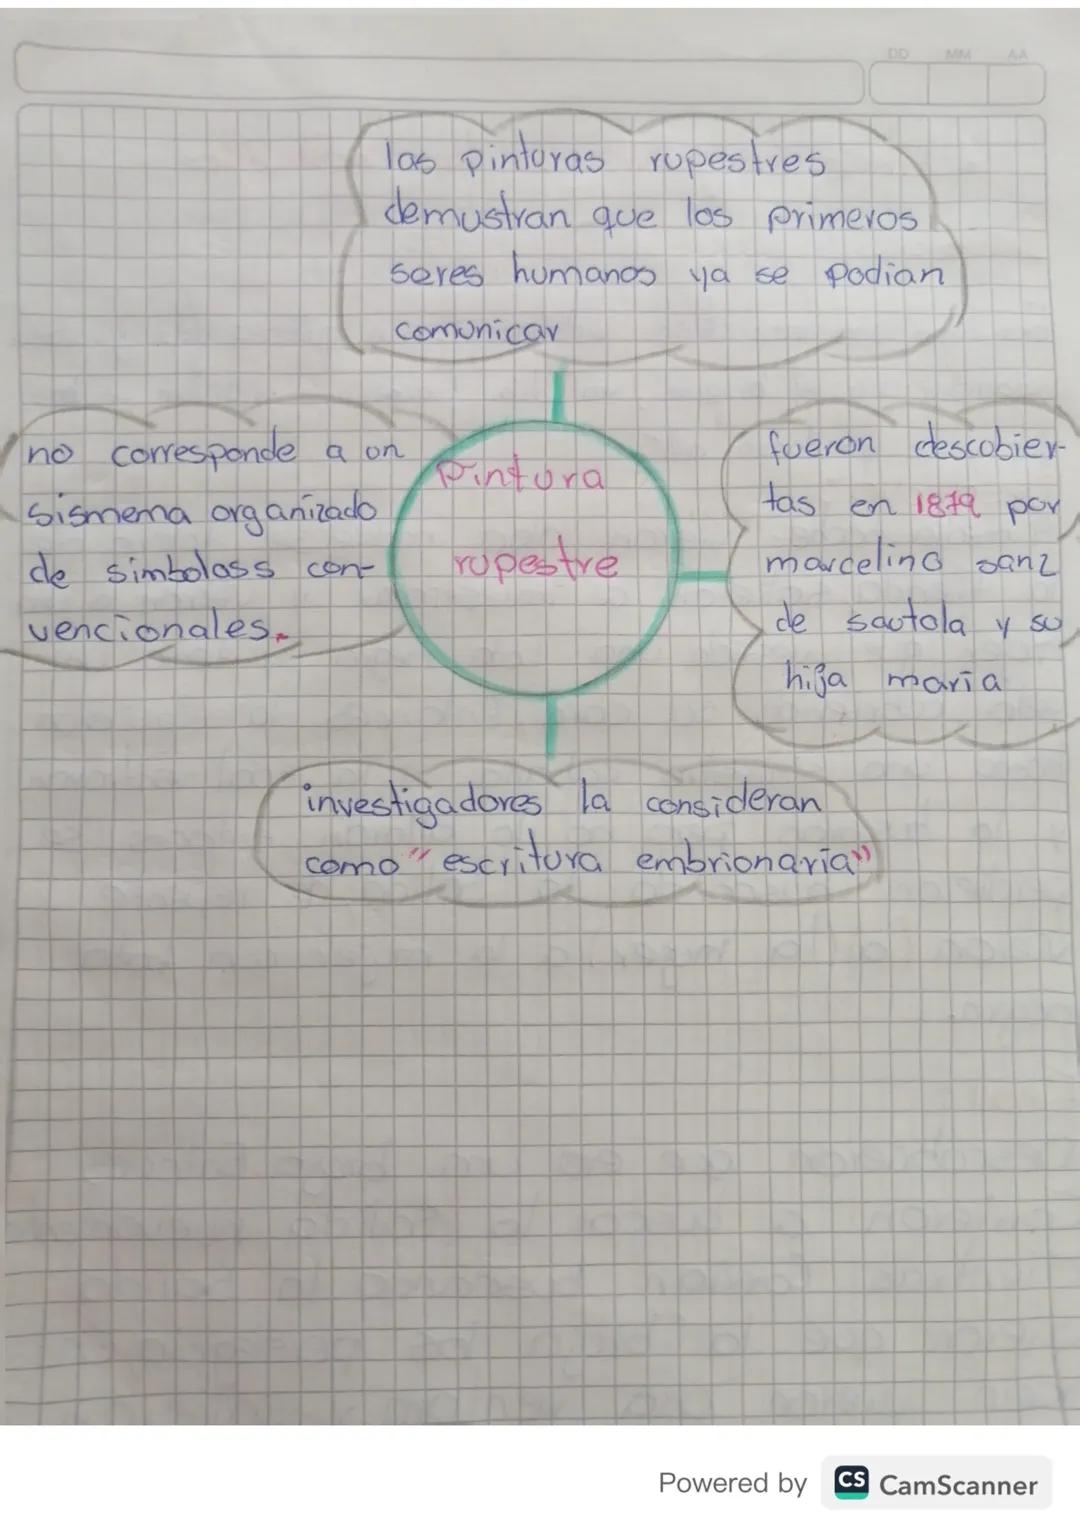 DD MM AA
las pinturas rupestres
demustran que los primeros
seres humanos ya se podian
comunicar
no corresponde a un
sismema organizado
de simbolass con-
vencionales.
Pintura
rupestre
fueron descobier-
tas en 1879 por
marcelino sanz
de sautola y su
hija maria
investigadores la consideran
como "escritura embrionaria"
Powered by CS CamScanner